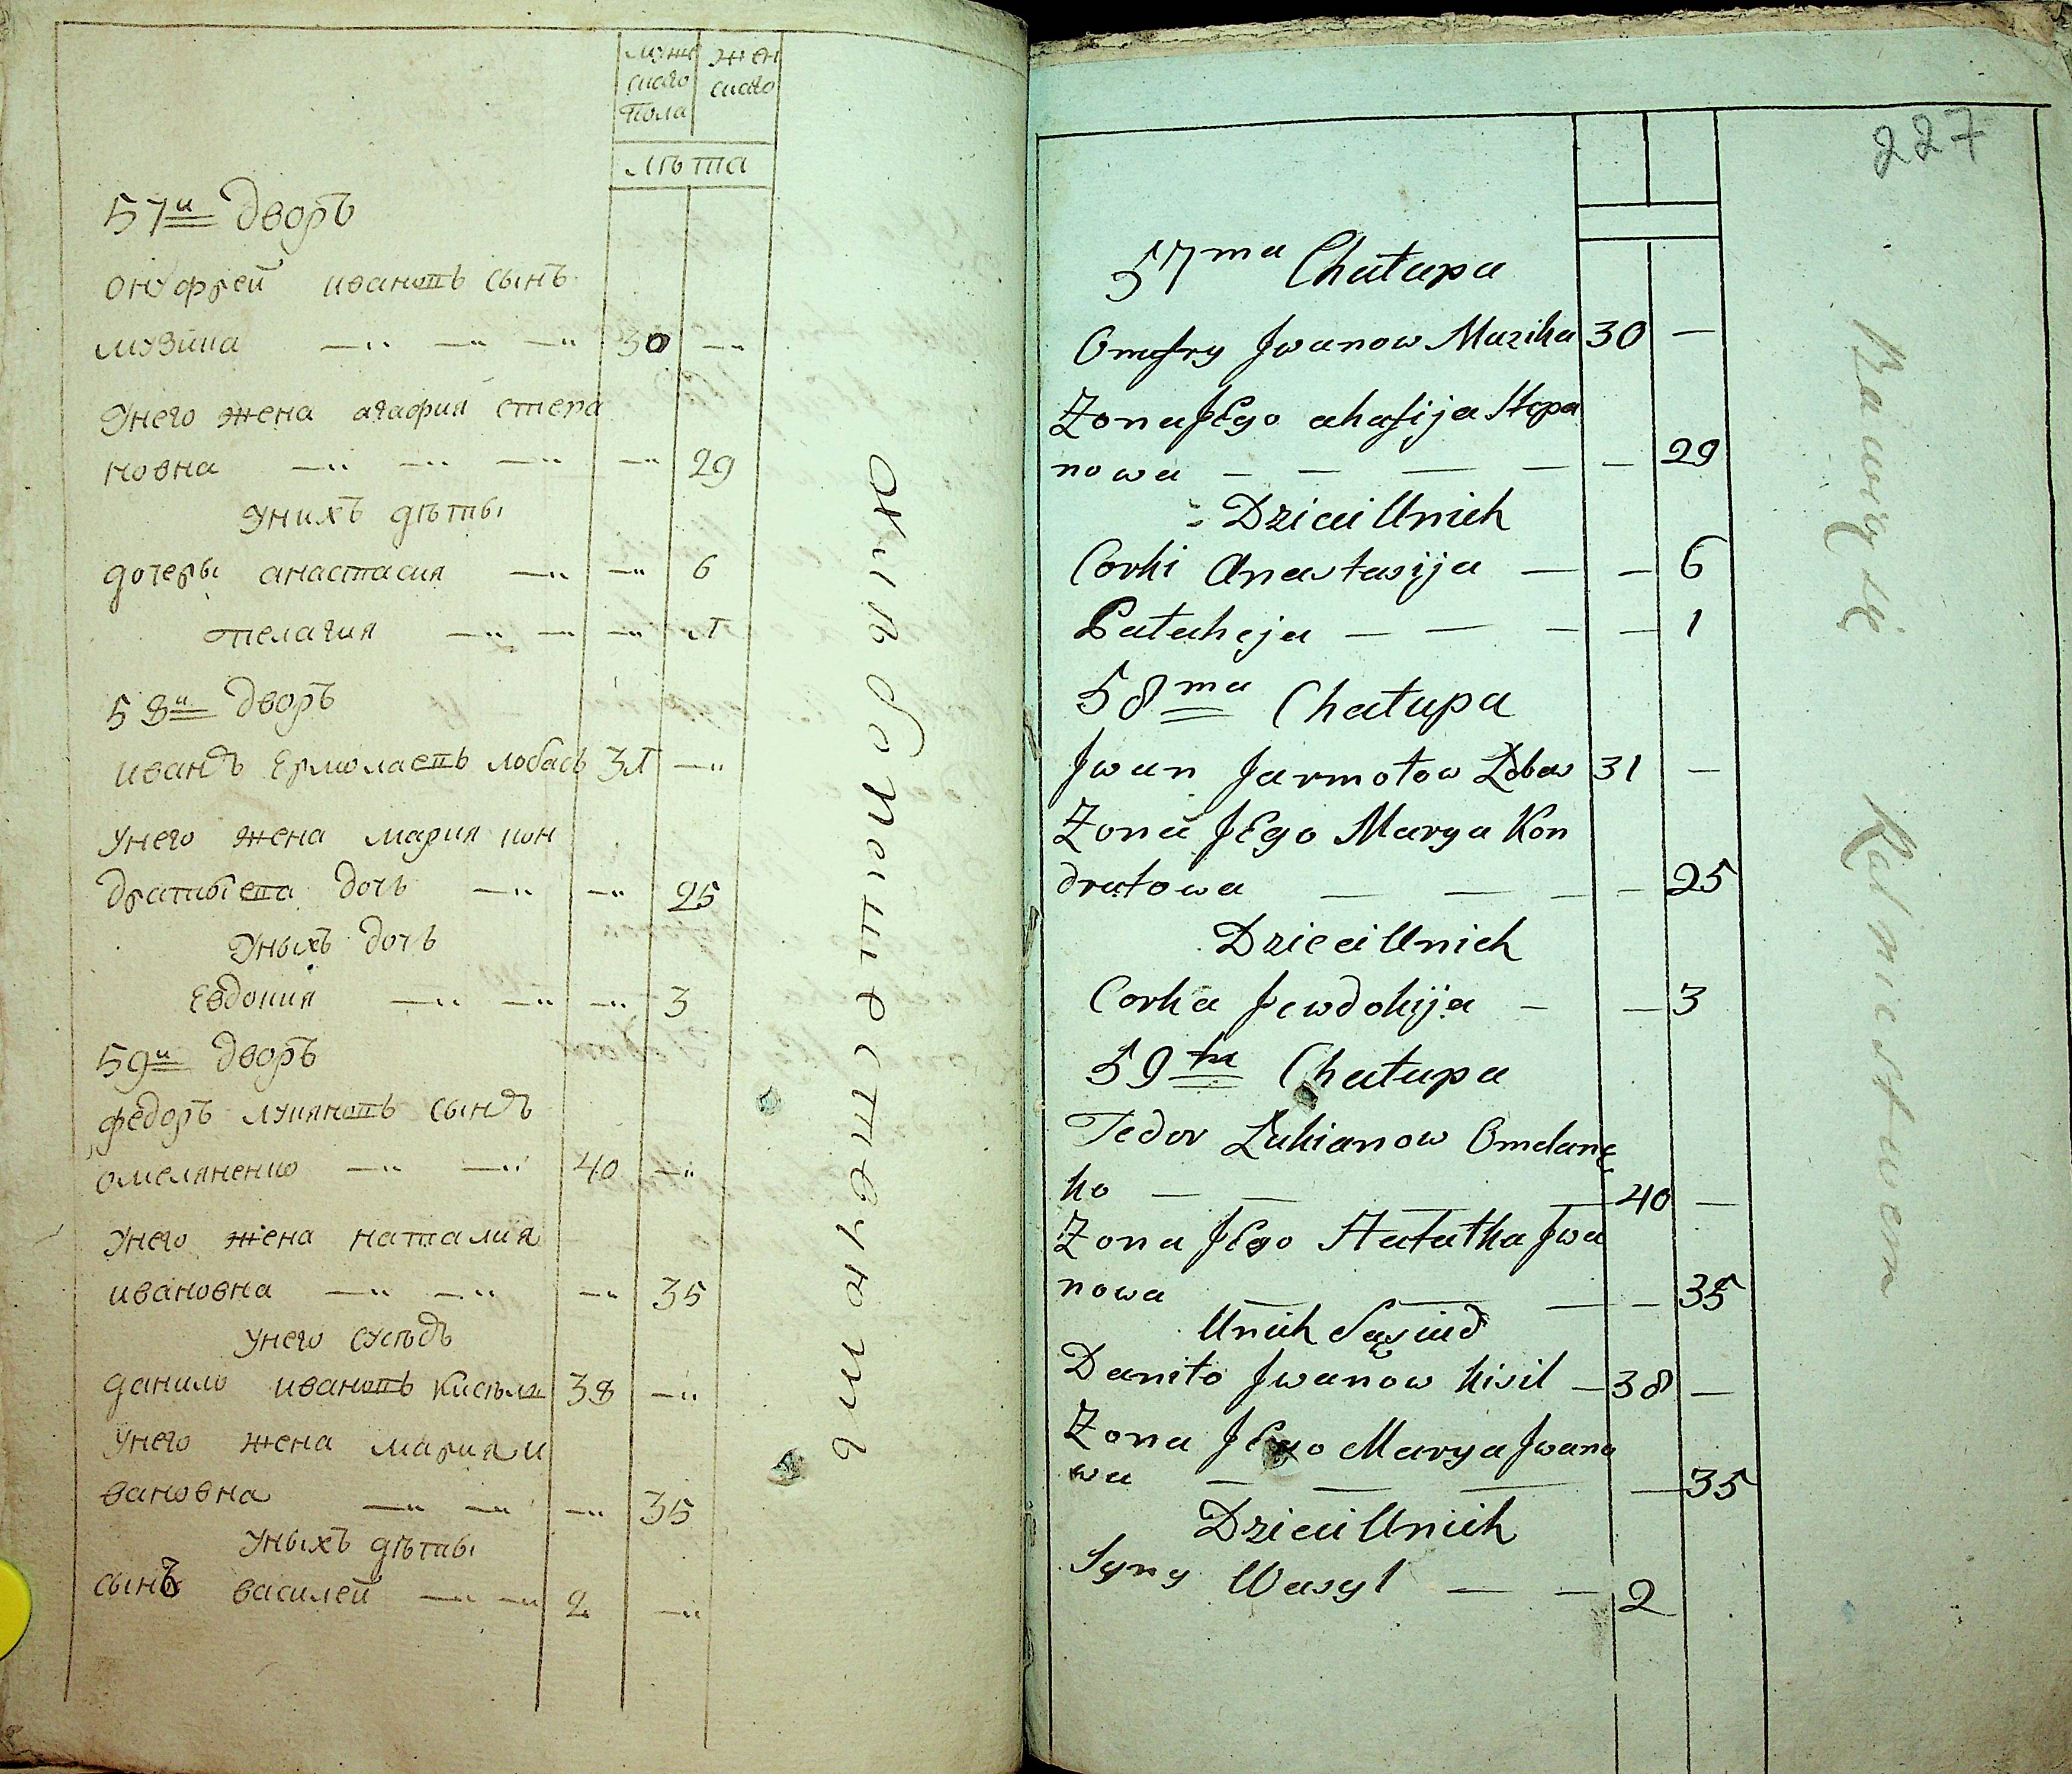 муже
ского
пола
жен
ского
лѣта
57й дворъ
онуфрей ивановъ сынъ
музика — — — 30 —
Унего жена агафия степа
новна — — — — 29
Унихъ дѣты
дочеры анастасия — — 6
пелагия — — — 1
58й дворъ
иванъ Ермолаевъ лобасъ 31 —
Унего жена мария кон
дратыева дочь — — 25
Уныхъ дочь
Евдокия — — — 3
59й дворъ
федоръ лукяновъ сынъ
омеляненко — — 40 —
Унего жена наталия
ивановна — — — 35
Унего сусѣдъ
данило ивановъ Кисѣль 38 —
Унего жена мария и
вановна — — — 35
Уныхъ дѣты
сынъ василей — — 2 —
227
57ma Chałupa
Onufry Jwanow Muzika 30 —
Zona JEgo ahafija Stepa
nowa — — — — — 29
Dzieci Unich
Corki Anastasija — — 6
Pałaheja — — — — 1
58ma Chałupa
Jwan Jarmołow Łobas 31 —
Zona JEgo Marya Kon
dratowa — — — — 25
Dzieci Unich
Corka Jewdokija — — 3
59ta Chałupa
Fedor Łukianow Omelane
ko — — — — 40 —
Zona JEgo Natałka Jwa
nowa — — — — 35
Unich Sąsiad
Daniło Jwanow kisil — 38 —
Zona JEgo Marya Jwano
wa — — — — 35
Dzieci Unich
Syny Wasyl — — 2
Bawię się